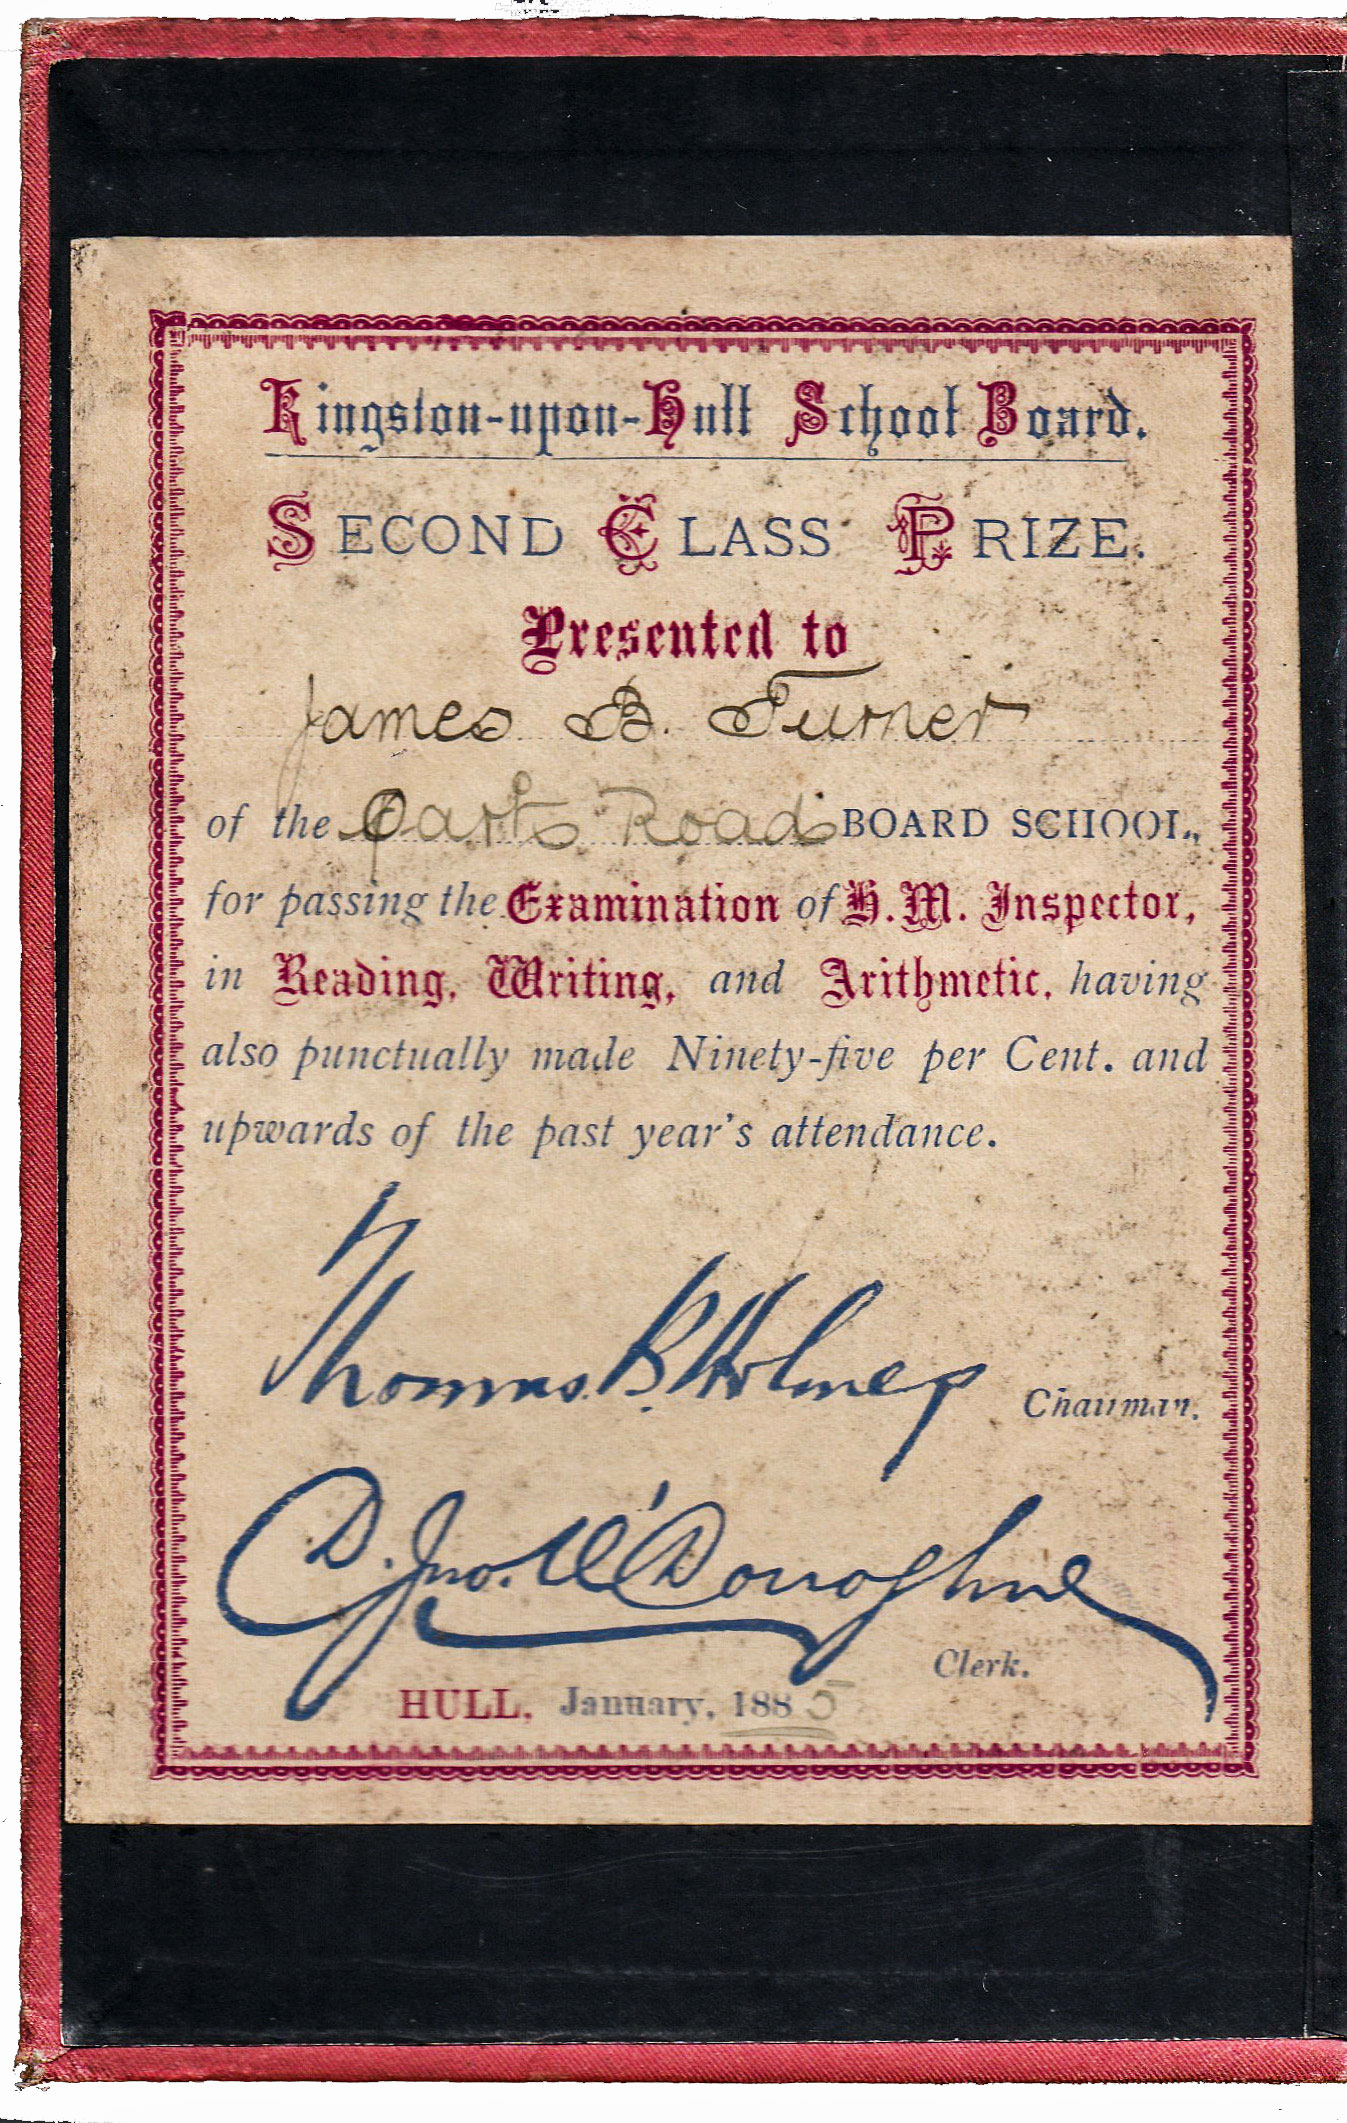 Kingston-upon-Hull School Board.
SECOND CLASS PRIZE.
Presented to
James B. Turner
of the Road BOARD SCHOOL,
for passing the Examination of H.M. Inspector,
in Reading, Writing, and Arithmetic, having
also punctually made Ninety-five per Cent. and
upwards of the past year's attendance.
Thomas B Holmes Chairman.
D. Jno. O'Donoghue
Clerk.
HULL, January, 1885